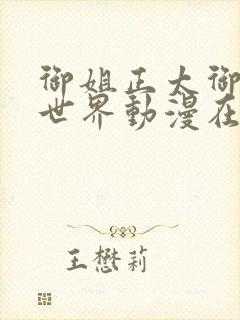 御姐正太御
世界動漫在
王懋莉